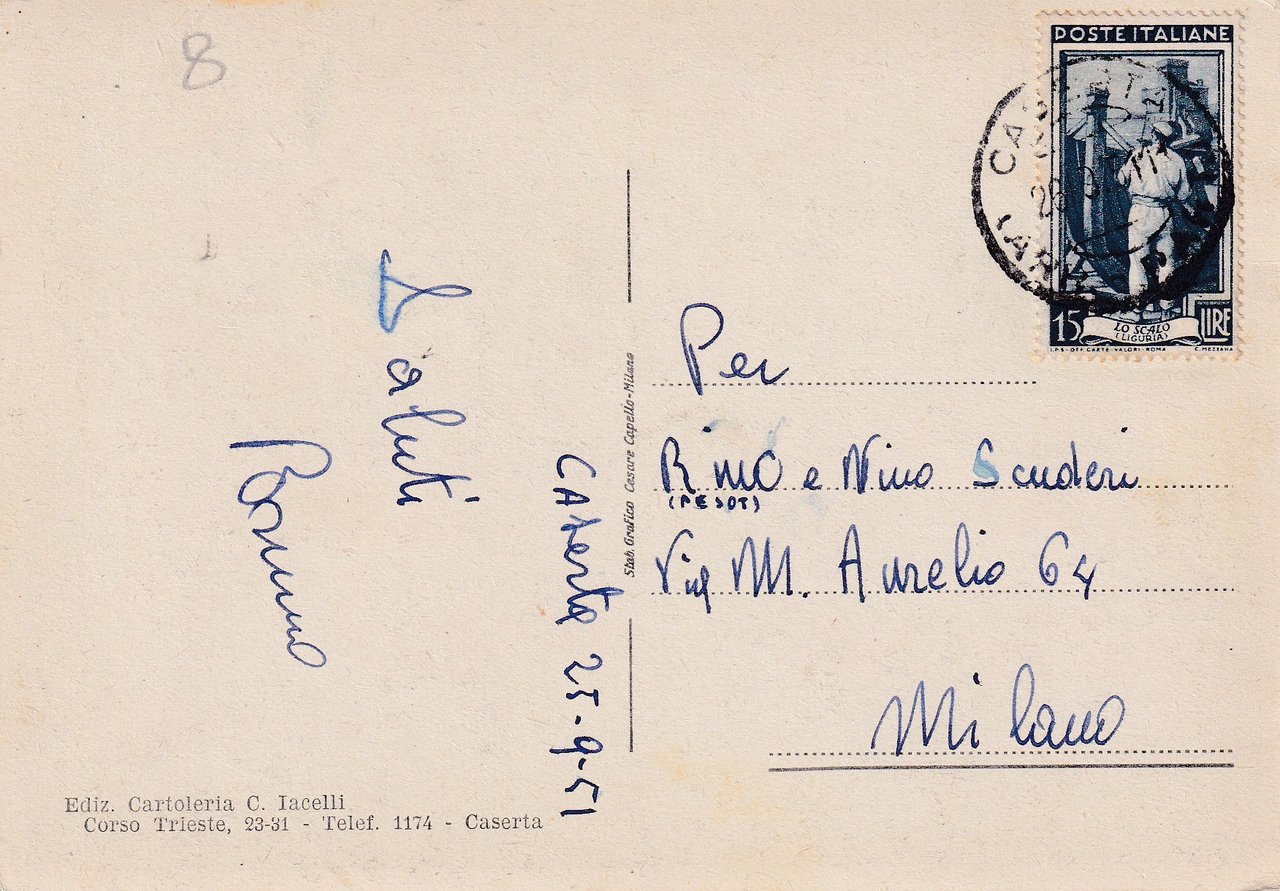 8
POSTE ITALIANE
15 LO SCALO LIRE
(LIGURIA)
I.P.S-OFF. CARTE-VALORI-ROMA C. MEZZANA
CASERTA
Saluti
Caserta 25-9-51
Stab. Grafico Cesare Capello-Milano
Per
Rino e Nino Scuderi
Via M. Aurelio 64
Milano
Ediz. Cartoleria C. Iacelli
Corso Trieste, 23-31 - Telef. 1174 - Caserta